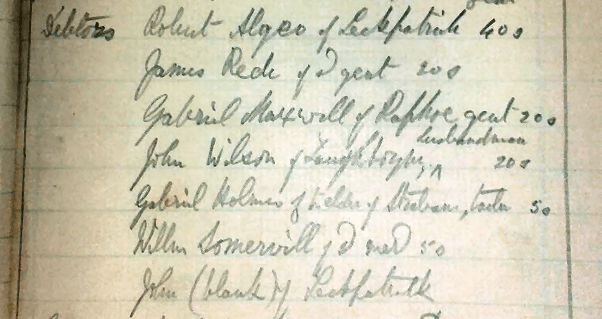 Debtors Robert Algeo of Leckpatrick 40s
James Rede of d gent 20s
Gabriel Maxwell of Raphoe gent 20s
John Wilson of husbandman 20s
Gabriel Holmes of of Strabane, tailor 5s
Willm Somervill of d 5s
John (blank) of Leckpatrick